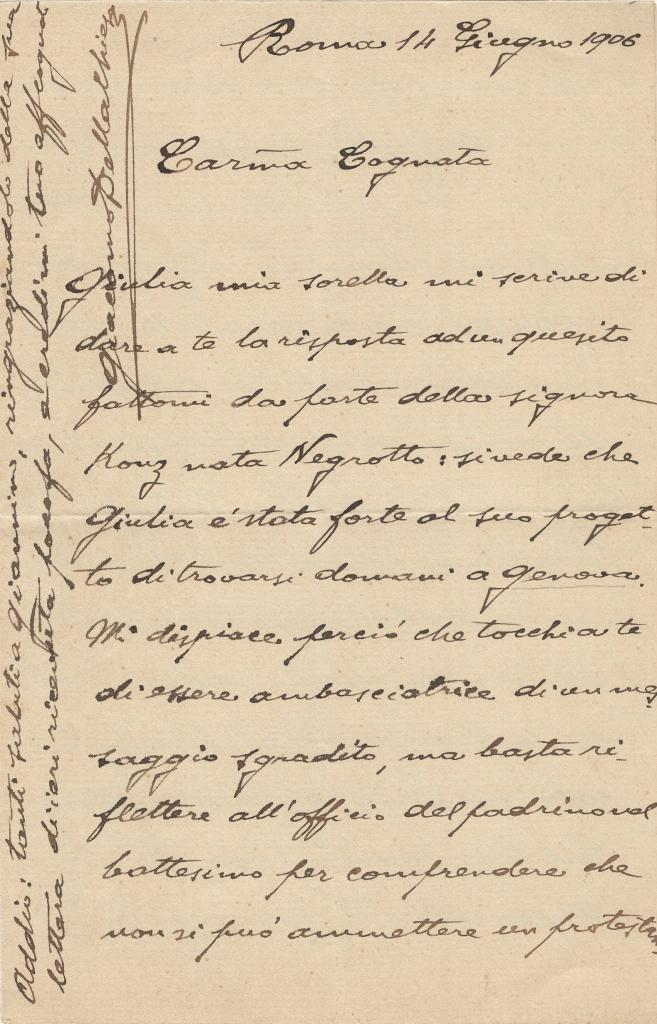 Roma 14 Giugno 1906
Carm̃a Cognata
Giulia mia sorella mi scrive di
dare a te la risposta ad un quesito
fattomi da parte della signora
Konz nata Negrotto: si vede che
Giulia é stata forte al suo proget-
to di trovarsi domani a Genova.
Mi dispiace perció che tocchi a te
di essere ambasciatrice di un mes-
saggio sgradito, ma basta ri-
flettere all'officio del padrino nel
battesimo per comprendere che
non si puó ammettere un protestan-
Addio: tanti saluti a Giannino, ringraziandolo della sua
lettera di ieri ricevuta poco fa, e credimi tuo aff cognato
Giacomo Della Chiesa